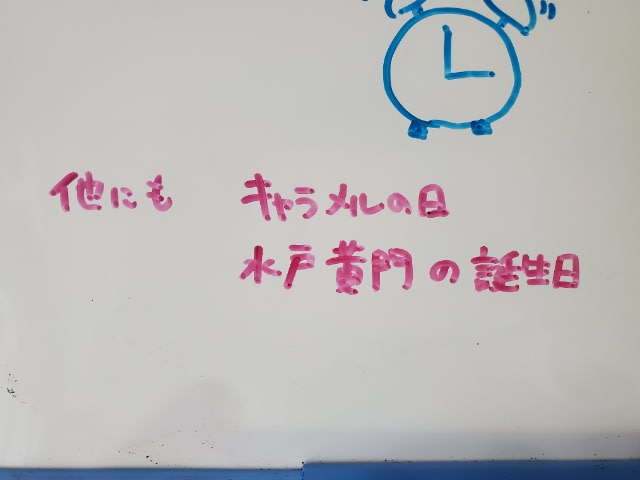 他にも キャラメルの日
水戸黄門の誕生日